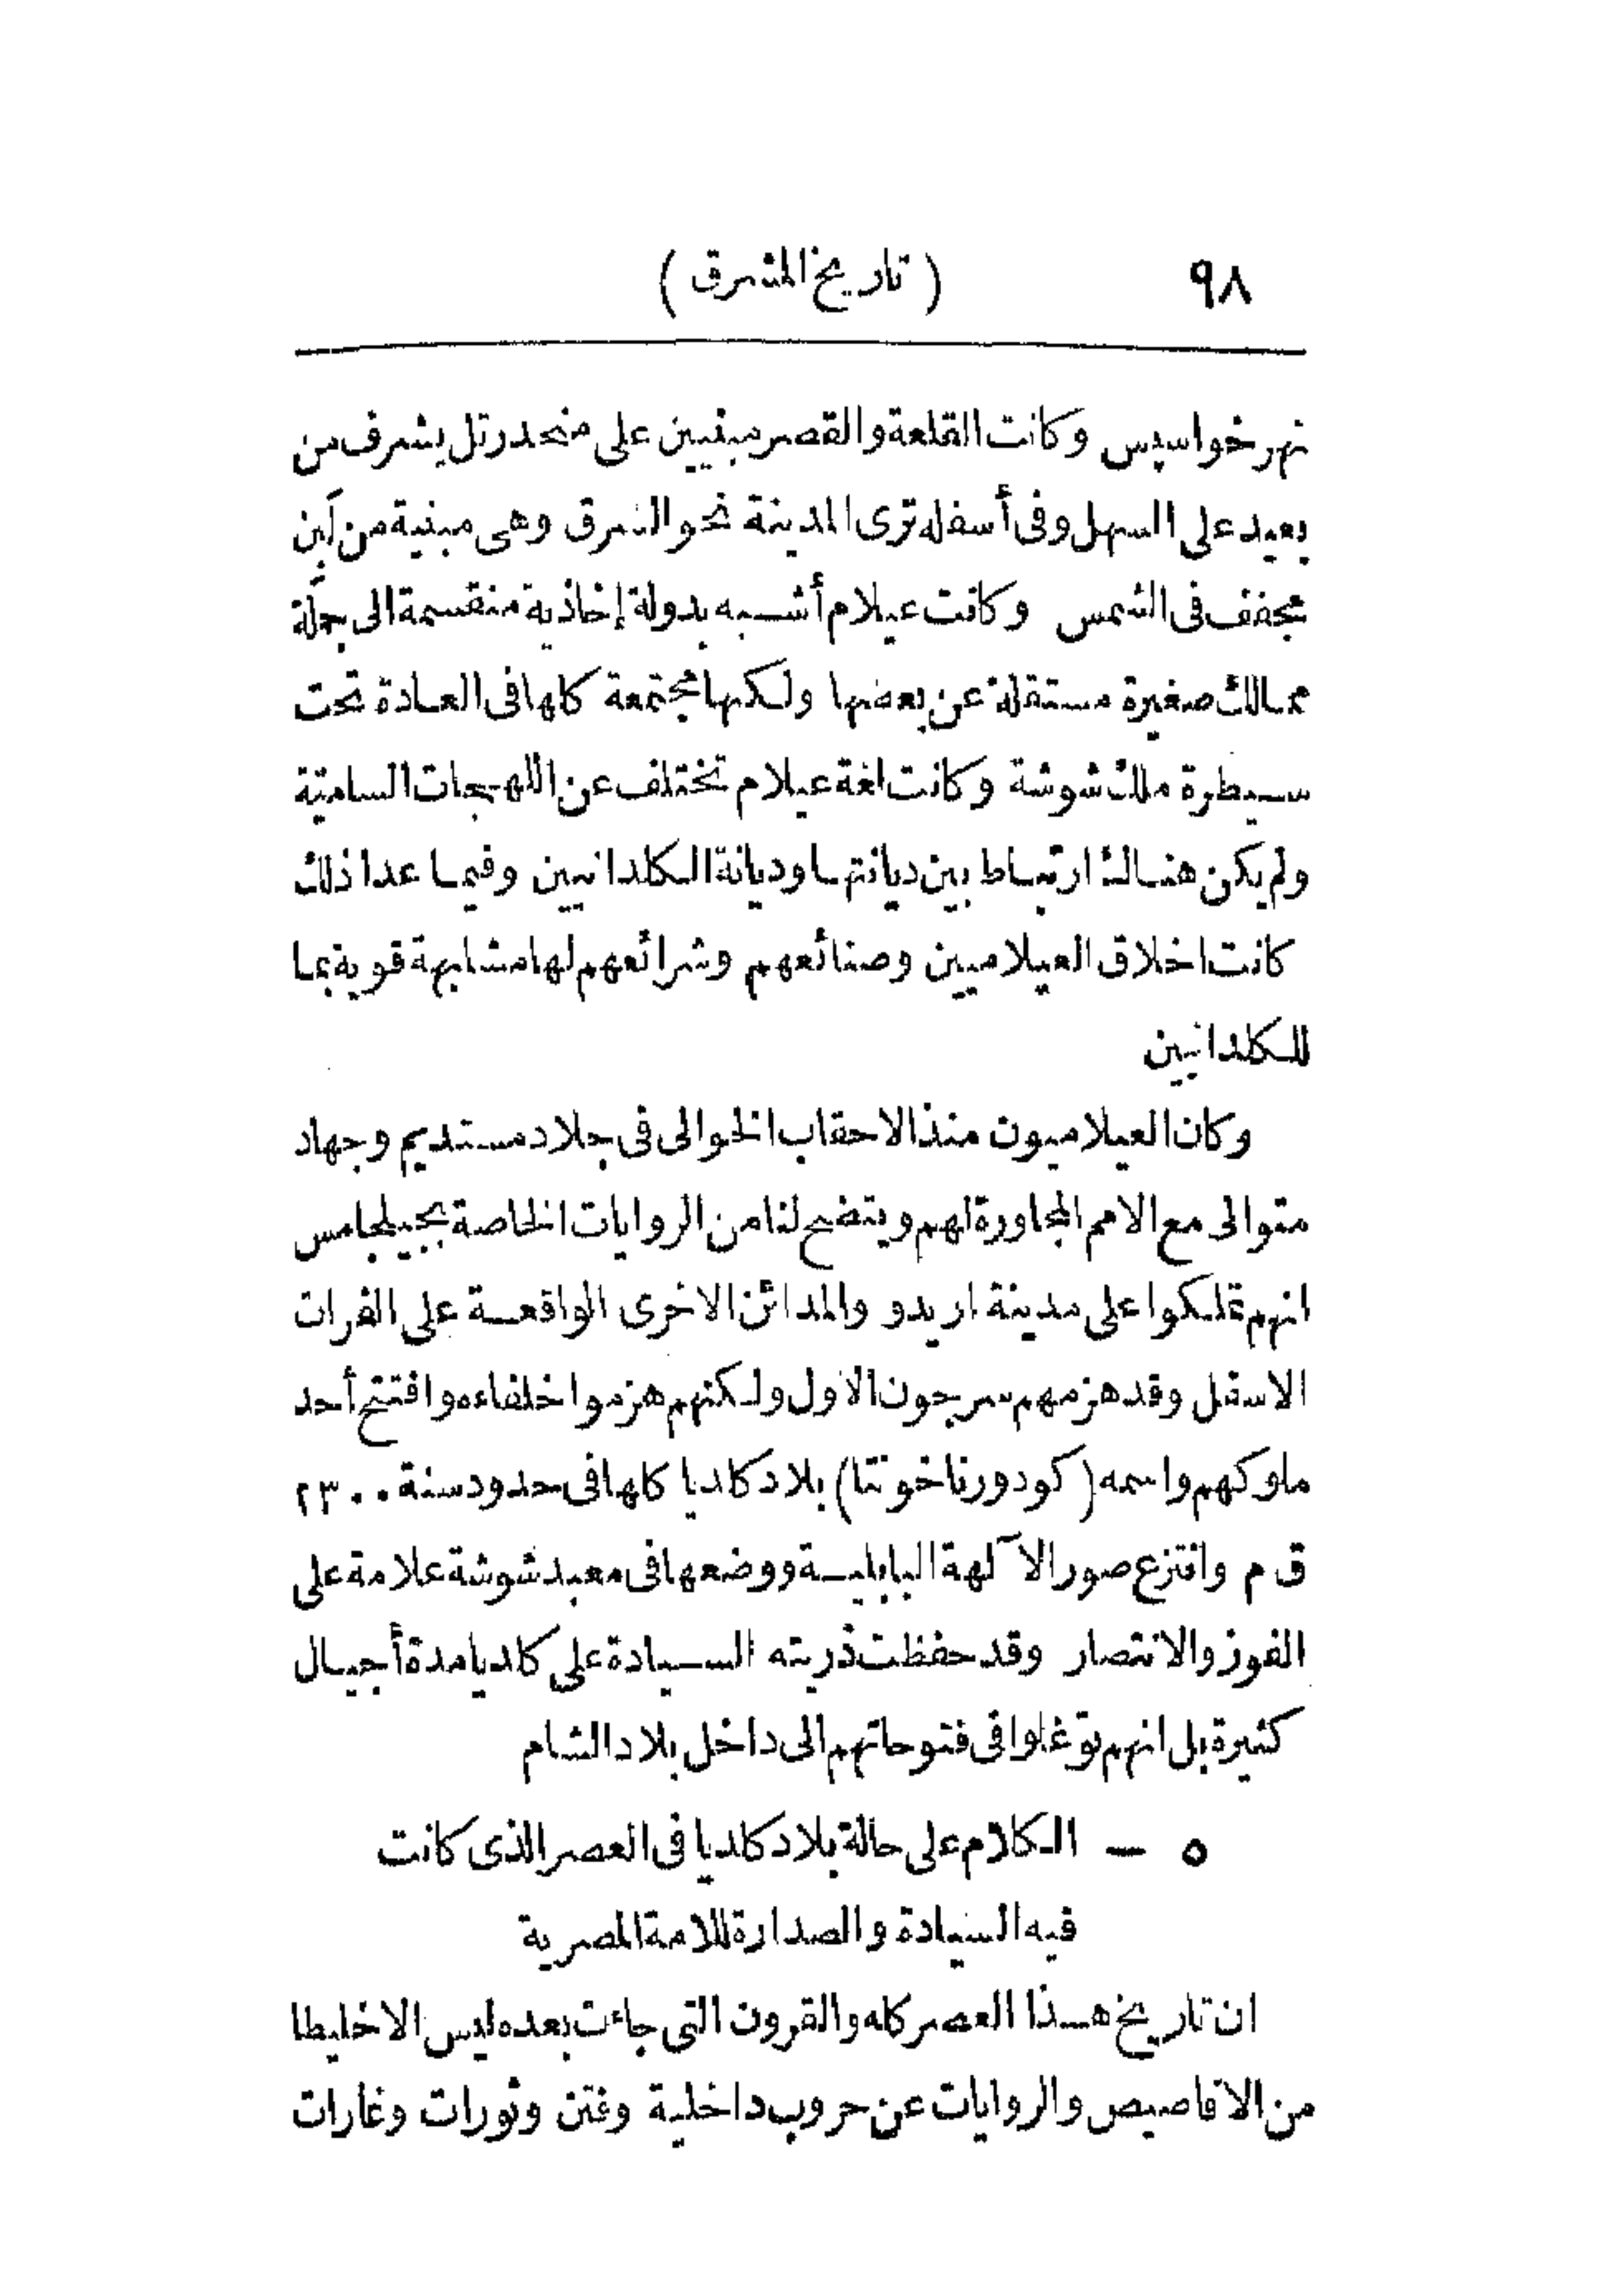 ٩٨ ( تاريخ المشرق )
نهر خواسپس وكانت القلعة والقصر مبنيين على منحدر تل يشرف من
بعيد على السهل وفى أسفله ترى المدينة نحو الشرق وهى مبنية من لَبِن
مجفف فى الشمس وكانت عيلام أشبه بدولة إخاذية منقسمة الى جملة
ممالك صغيرة مستقلة عن بعضها ولكنها مجتمعة كلها فى العادة تحت
سيطرة ملك شوشة وكانت لغة عيلام تختلف عن اللهجات الساميّة
ولم يكن هنالك ارتباط بين ديانتها وديانة الكلدانيين وفيما عدا ذلك
كانت اخلاق العيلاميين وصنائعهم وشرائعهم لها مشابهة قوية بما
للكلدانيين
وكان العيلاميون منذ الاحقاب الخوالى فى جلاد مستديم وجهاد
متوالى مع الامم المجاورة لهم ويتضح لنا من الروايات الخاصة بجيلجامس
انهم تملكوا على مدينة اريدو والمدائن الاخرى الواقعة على الفرات
الاسفل وقد هزمهم سرجون الاول ولكنهم هزموا خلفاءه وافتتح أحد
ملوكهم واسمه (كودورناخونتا) بلاد كلديا كلها فى حدود سنة ٢٣٠٠
ق م وانتزع صور الآلهة البابلية ووضعها فى معبد شوشة علامة على
الفوز والانتصار وقد حفظت ذريته السيادة على كلديا مدة أجيال
كثيرة بل انهم توغلوا فى فتوحاتهم الى داخل بلاد الشام
٥ — الكلام على حالة بلاد كلديا فى العصر الذى كانت
فيه السيادة والصدارة للامة المصرية
ان تاريخ هذا العصر كله والقرون التى جاءت بعده ليس الا خليطا
من الاقاصيص والروايات عن حروب داخلية وفتن وثورات وغارات